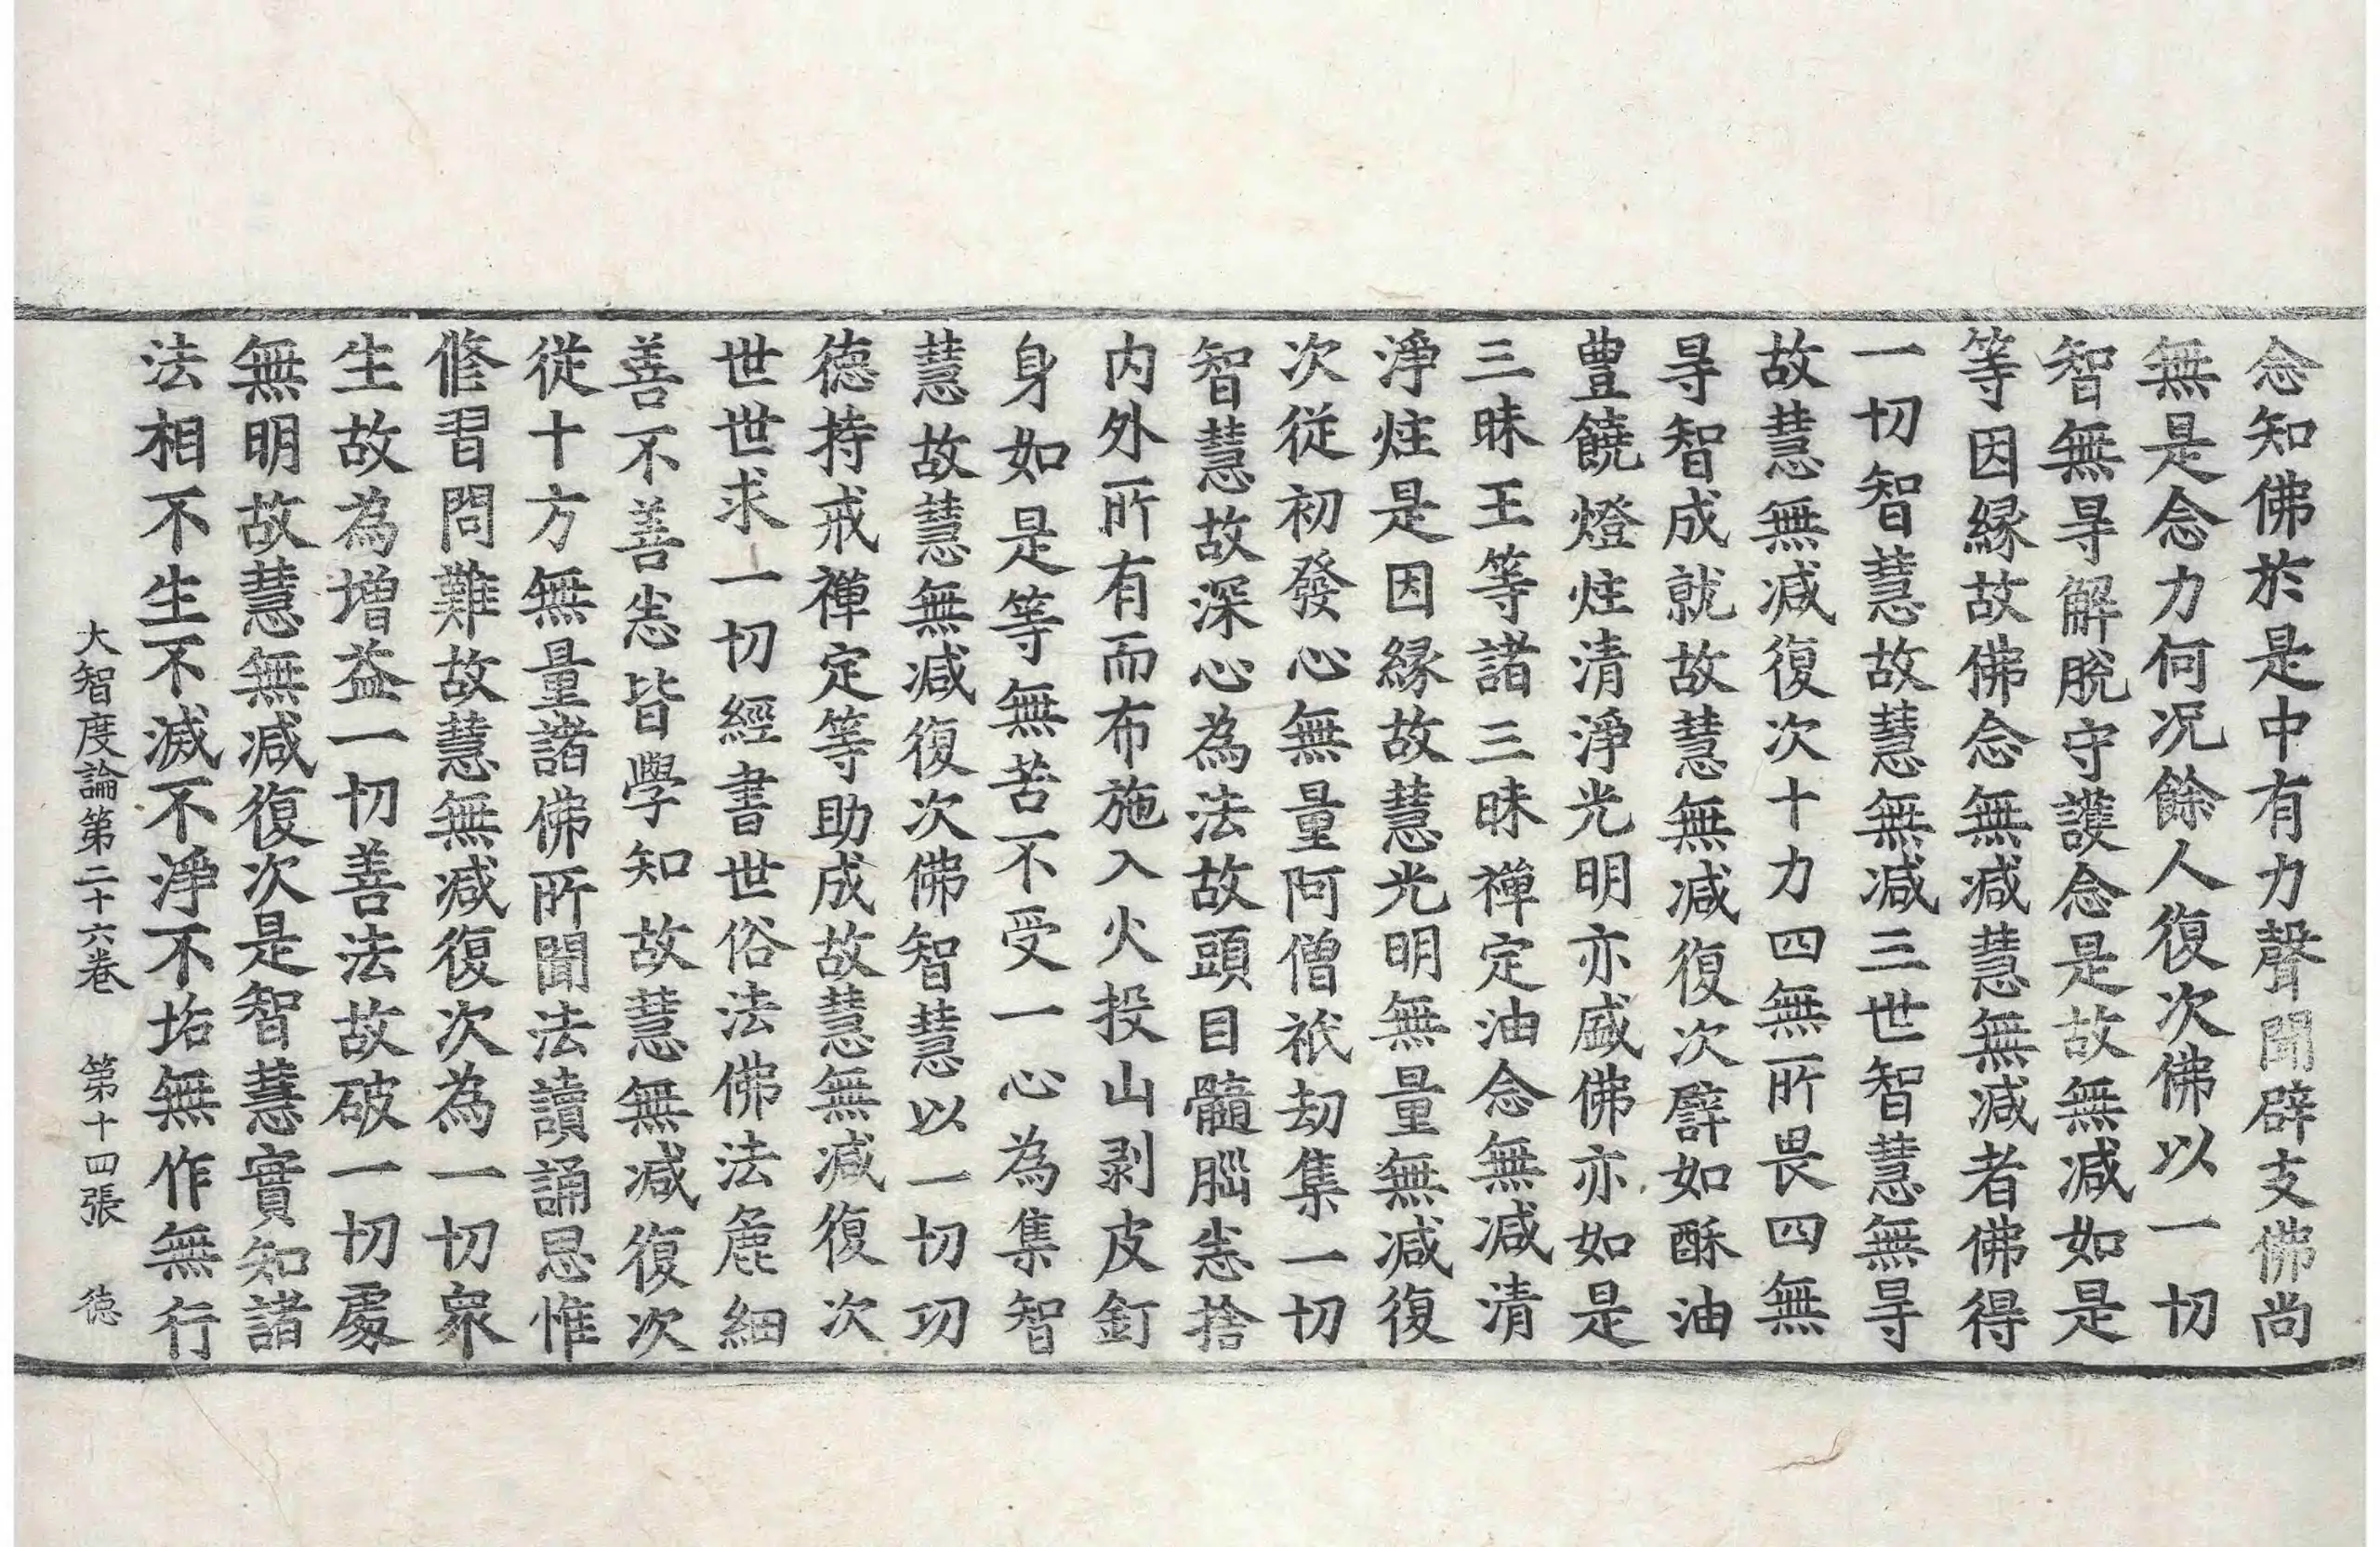 念知佛於是中有力聲聞辟支佛尚
無是念力何况餘人復次佛以一切
智無㝵解脫守護念是故無減如是
等因緣故佛念無減慧無減者佛得
一切智慧故慧無減三世智慧無㝵
故慧無減復次十力四無所畏四無
㝵智成就故慧無減復次譬如酥油
豊饒燈炷清淨光明亦盛佛亦如是
三昧王等諸三昧禪定油念無減清
淨炷是因緣故慧光明無量無減復
次從初發心無量阿僧祇劫集一切
智慧故深心為法故頭目髓腦悉捨
内外所有而布施入火投山剥皮釘
身如是等無苦不受一心為集智
慧故慧無減復次佛智慧以一切功
德持戒禪定等助成故慧無減復次
世世求一切經書世俗法佛法麁細
善不善悉皆學知故慧無減復次
從十方無量諸佛所聞法讀誦思惟
修習問難故慧無減復次為一切衆
生故為增益一切善法故破一切處
無明故慧無減復次是智慧實知諸
法相不生不滅不淨不垢無作無行
大智度論第二十六卷　第十四張　德